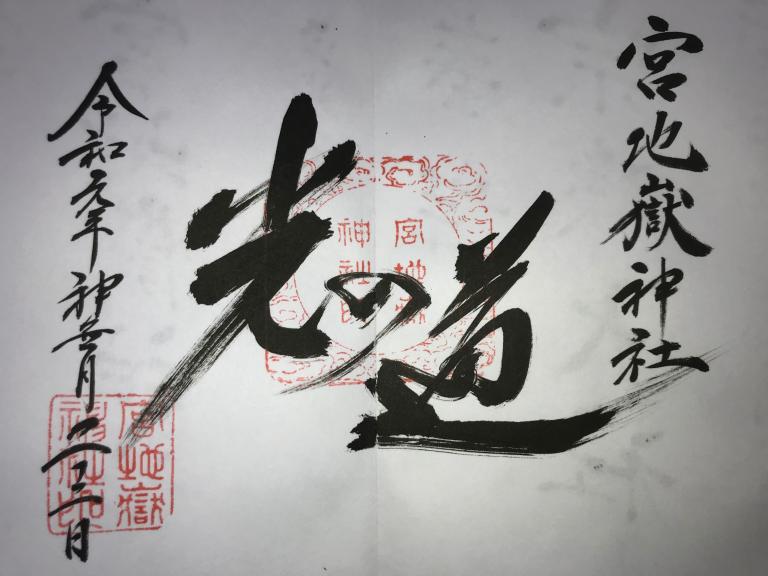 宮地嶽神社
光の道
令和元年神無月二十二日
宮地嶽
神社印
宮地嶽
神社印